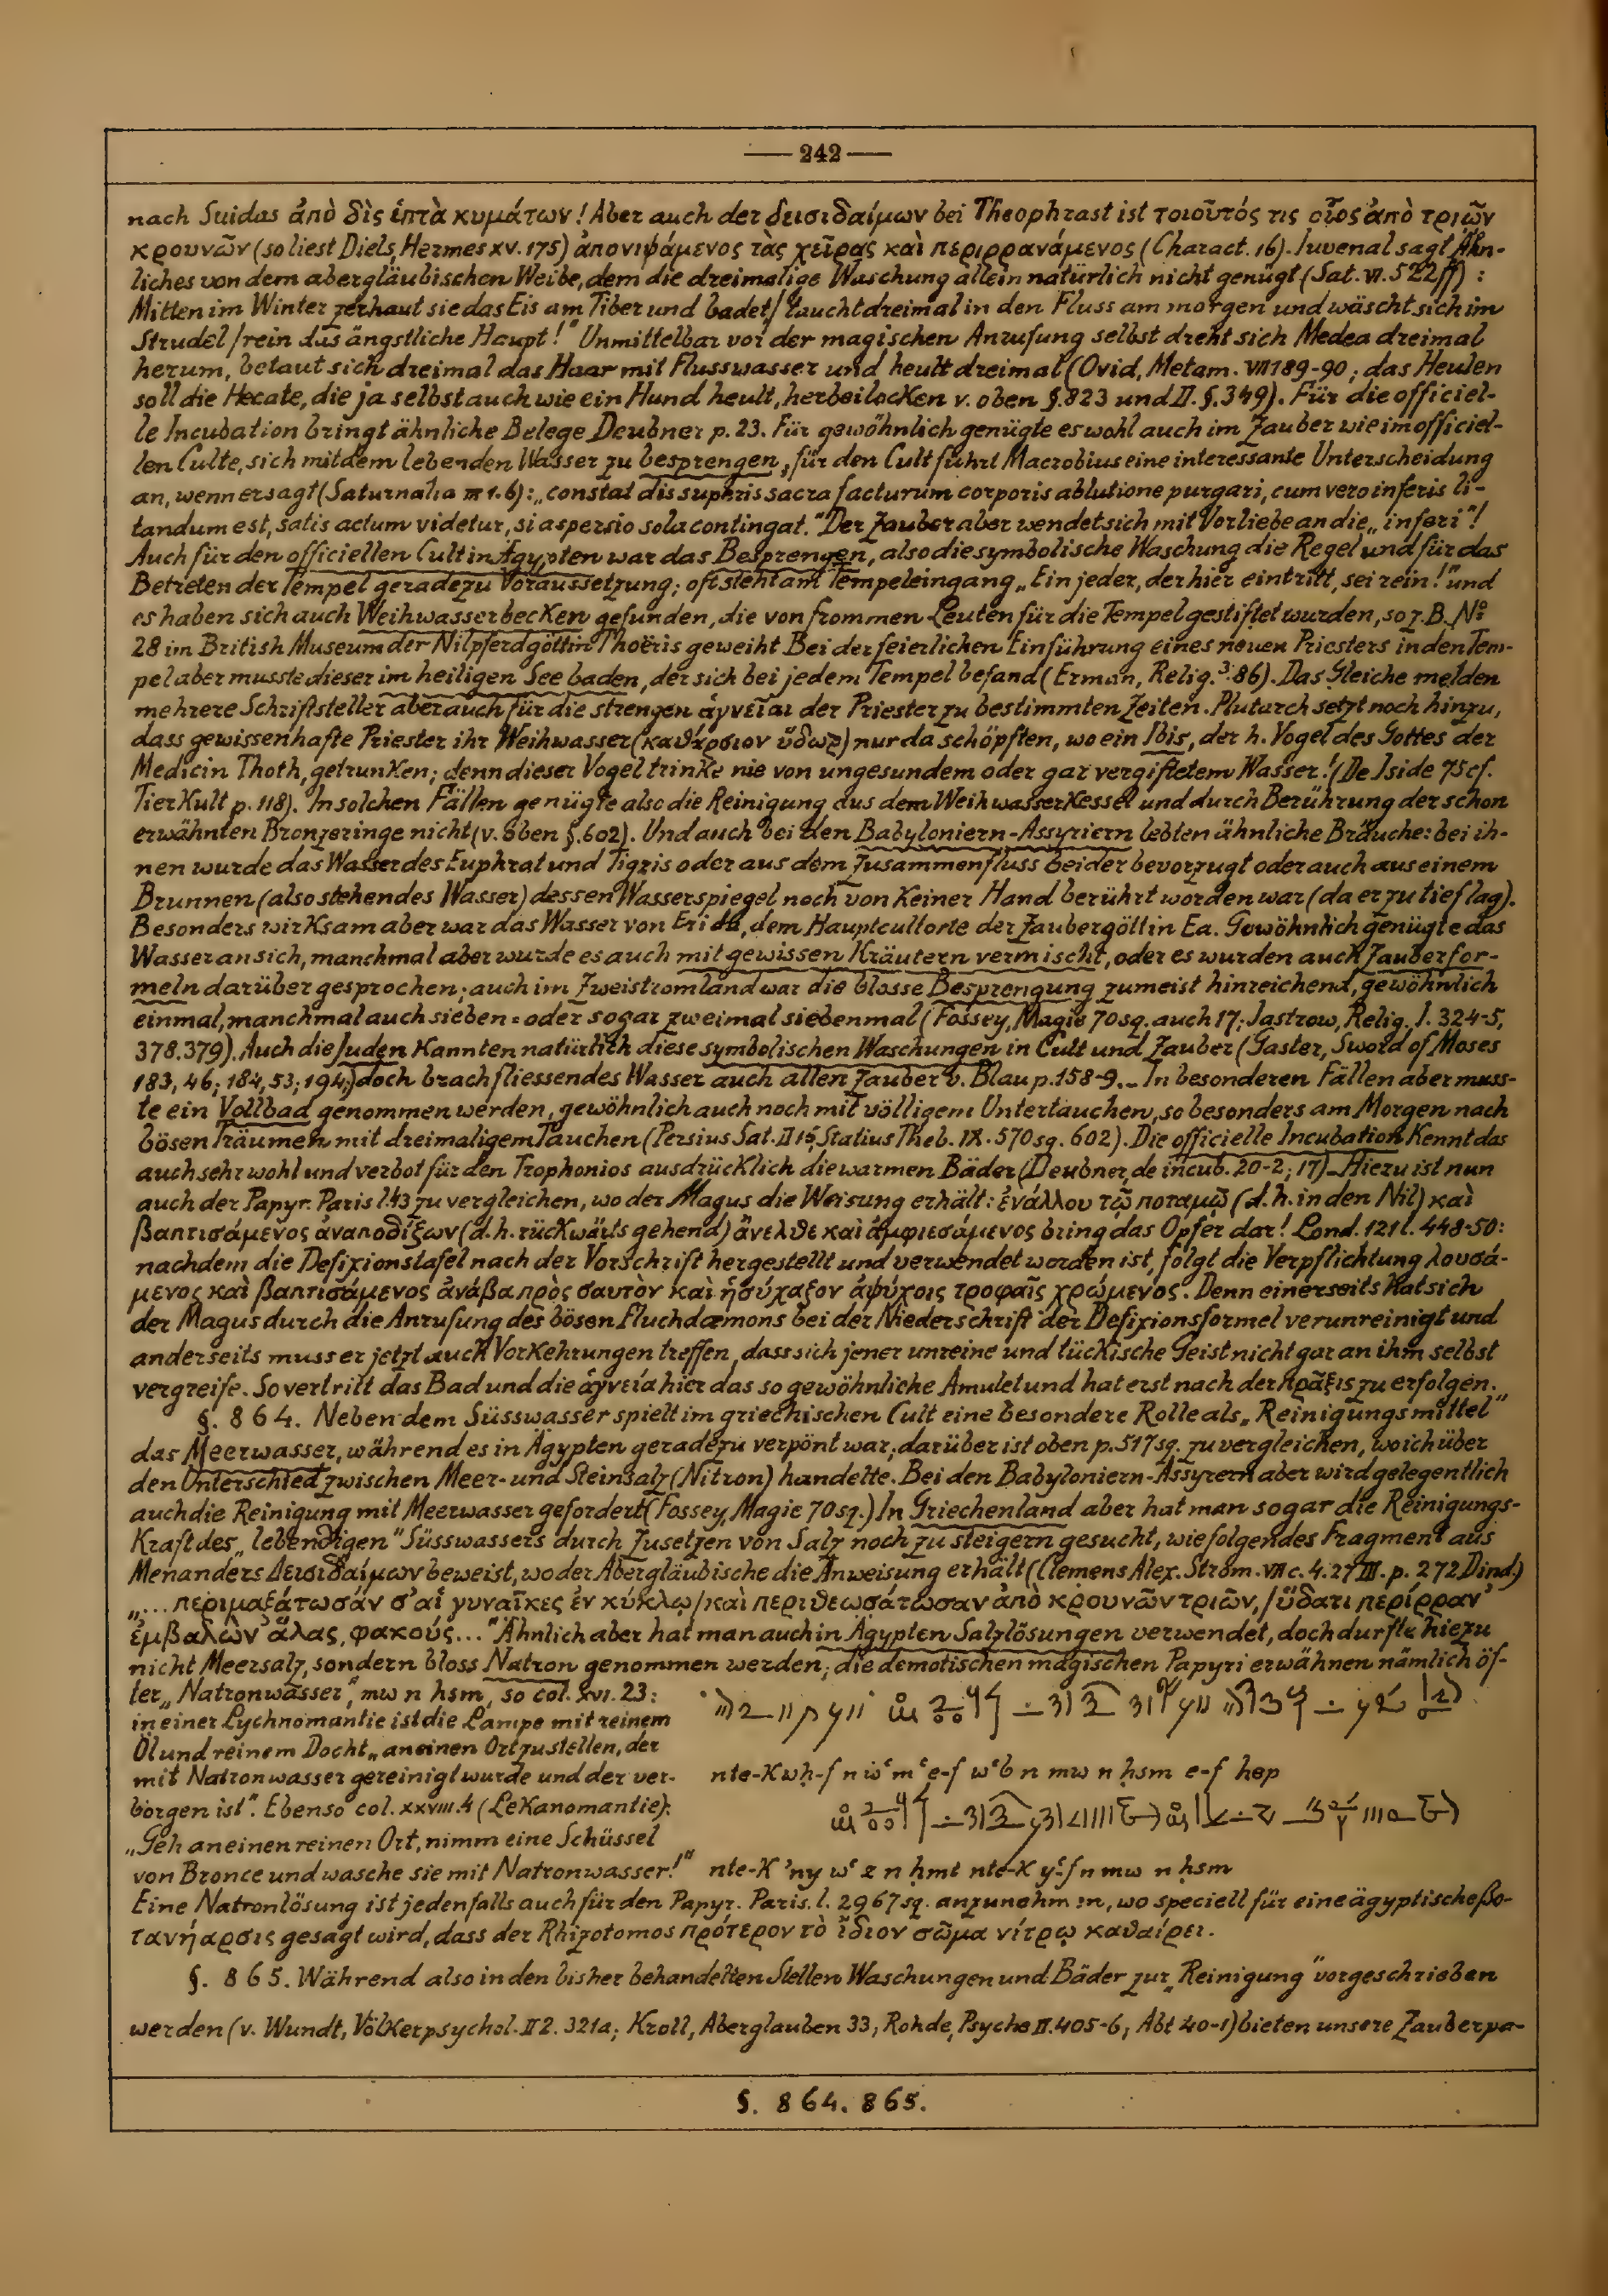 — 242 —
nach Suidas ἀπὸ δὶς ἑπτὰ κυμάτων! Aber auch der δεισιδαίμων bei Theophrast ist τοιοῦτός τις οἷος ἀπὸ τριῶν
κρουνῶν (so liest Diels, Hermes XV. 175) ἀπονιψάμενος τὰς χεῖρας καὶ περιρρανάμενος (Charact. 16). Iuvenal sagt Ähn-
liches von dem abergläubischen Weibe, dem die dreimalige Waschung allein natürlich nicht genügt (Sat. VI. 522ff):
Mitten im Winter zerhaut sie das Eis am Tiber und badet/ taucht dreimal in den Fluss am morgen und wäscht sich im
Strudel/ rein das ängstliche Haupt!" Unmittelbar vor der magischen Anrufung selbst dreht sich Medea dreimal
herum, betaut sich dreimal das Haar mit Flusswasser und heult dreimal (Ovid, Metam. VII 189-90; das Heulen
soll die Hecate, die ja selbst auch wie ein Hund heult, herbeilocken v. oben §. 823 und II. §. 349). Für die officiel-
le Incubation bringt ähnliche Belege Deubner p. 23. Für gewöhnlich genügte es wohl auch im Zauber wie im officiel-
len Culte, sich mit dem lebenden Wasser zu besprengen, für den Cult führt Macrobius eine interessante Unterscheidung
an, wenn er sagt (Saturnalia III 1. 6): „constat dis supĕris sacra facturum corporis ablutione purgari, cum vero inferis li-
tandum est, satis actum videtur, si aspersio sola contingat." Der Zauber aber wendet sich mit Vorliebe an die „inferi"!
Auch für den officiellen Cult in Ägypten war das Besprengen, also die symbolische Waschung die Regel und für das
Betreten der Tempel geradezu Voraussetzung; oft steht am Tempeleingang „Ein jeder, der hier eintritt, sei rein!" und
es haben sich auch Weihwasserbecken gefunden, die von frommen Leuten für die Tempel gestiftet wurden, so z. B. No
28 im British Museum der Nilpferdgöttin Thoëris geweiht Bei der feierlichen Einführung eines neuen Priesters in den Tem-
pel aber musste dieser im heiligen See baden, der sich bei jedem Tempel befand (Erman, Relig.³ 86). Das Gleiche melden
mehrere Schriftsteller aber auch für die strengen ἁγνεῖαι der Priester zu bestimmten Zeiten. Plutarch setzt noch hinzu,
dass gewissenhafte Priester ihr Weihwasser (καθάρσιον ὕδωρ) nur da schöpften, wo ein Ibis, der h. Vogel des Gottes der
Medicin Thoth, getrunken; denn dieser Vogel trinke nie von ungesundem oder gar vergiftetem Wasser! (De Iside 75 cf.
Tierkult p. 118). In solchen Fällen genügte also die Reinigung aus dem Weihwasserkessel und durch Berührung der schon
erwähnten Bronzeringe nicht (v. oben §. 602). Und auch bei den Babyloniern-Assyriern lebten ähnliche Bräuche: bei ih-
nen wurde das Wasser des Euphrat und Tigris oder aus dem Zusammenfluss beider bevorzugt oder auch aus einem
Brunnen (also stehendes Wasser) dessen Wasserspiegel noch von keiner Hand berührt worden war (da er zu tief lag).
Besonders wirksam aber war das Wasser von Eridu, dem Hauptcultorte der Zaubergöttin Ea. Gewöhnlich genügte das
Wasser an sich, manchmal aber wurde es auch mit gewissen Kräutern vermischt, oder es wurden auch Zauberfor-
meln darüber gesprochen; auch im Zweistromland war die blosse Besprengung zumeist hinreichend, gewöhnlich
einmal, manchmal auch sieben= oder sogar zweimal siebenmal (Fossey, Magie 70 sq. auch 17; Jastrow, Relig. I. 324-5,
378. 379). Auch die Juden kannten natürlich diese symbolischen Waschungen in Cult und Zauber (Gaster, Sword of Moses
183, 46; 184, 53; 194;) doch brach fliessendes Wasser auch allen Zauber v. Blau p. 158-9. _ In besonderen Fällen aber muss-
te ein Vollbad genommen werden, gewöhnlich auch noch mit völligem Untertauchen, so besonders am Morgen nach
bösen Träumen mit dreimaligem Tauchen (Persius Sat. II 15, Statius Theb. IX. 570 sq. 602). Die officielle Incubation kennt das
auch sehr wohl und verbot für den Trophonios ausdrücklich die warmen Bäder (Deubner, de incub. 20-2; 17) _ Hiezu ist nun
auch der Papyr. Paris l. 43 zu vergleichen, wo der Magus die Weisung erhält: ἐνάλλου τῷ ποταμῷ (d. h. in den Nil) καὶ
βαπτισάμενος ἀναποδίζων (d. h. rückwärts gehend) ἄνελθε καὶ ἀμφιεσάμενος bring das Opfer dar! Lond. 121 l. 448-50:
nachdem die Defixionstafel nach der Vorschrift hergestellt und verwendet worden ist, folgt die Verpflichtung λουσά-
μενος καὶ βαπτισάμενος ἀνάβα πρὸς σαυτὸν καὶ ἡσύχαζον ἀψύχοις τροφαῖς χρώμενος. Denn einerseits hat sich
der Magus durch die Anrufung des bösen Fluchdæmons bei der Niederschrift der Defixionsformel verunreinigt und
anderseits muss er jetzt auch Vorkehrungen treffen, dass sich jener unreine und tückische Geist nicht gar an ihm selbst
vergreife. So vertritt das Bad und die ἁγνεία hier das so gewöhnliche Amulet und hat erst nach der πρᾶξις zu erfolgen.
§. 864. Neben dem Süsswasser spielt im griechischen Cult eine besondere Rolle als „Reinigungsmittel"
das Meerwasser, während es in Ägypten geradezu verpönt war; darüber ist oben p. 517 sq. zu vergleichen, wo ich über
den Unterschied zwischen Meer- und Steinsalz (Nitron) handelte. Bei den Babyloniern-Assyrern aber wird gelegentlich
auch die Reinigung mit Meerwasser gefordert (Fossey, Magie 70 sq.) In Griechenland aber hat man sogar die Reinigungs-
kraft des „lebendigen" Süsswassers durch Zusetzen von Salz noch zu steigern gesucht, wie folgendes Fragment aus
Menanders Δεισιδαίμων beweist, wo der Abergläubische die Anweisung erhält (Clemens Alex. Strom. VII c. 4. 27 III. p. 272 Dind.)
„... περιμαξάτωσάν σ' αἱ γυναῖκες ἐν κύκλῳ/ καὶ περιθεωσάτωσαν ἀπὸ κρουνῶν τριῶν,/ ὕδατι περίρραν'
ἐμβαλὼν ἅλας, φακούς..." Ähnlich aber hat man auch in Ägypten Salzlösungen verwendet, doch durfte hiezu
nicht Meersalz, sondern bloss Natron genommen werden; die demotischen magischen Papyri erwähnen nämlich öf-
ter „Natronwasser", mw n hsm, so col. XVI. 23:
in einer Lychnomantie ist die Lampe mit reinem
Öl und reinem Docht „an einen Ort zu stellen, der
mit Natronwasser gereinigt wurde und der ver-
borgen ist". Ebenso col. XXVIII. 4 (Lekanomantie):
„Geh an einen reinen Ort, nimm eine Schüssel
von Bronce und wasche sie mit Natronwasser!"
nte-k wḥ-f n wʿ mʿ e-f wʿb n mw n ḥsm e-f hep
nte-k ʾny wʿ z n ḥmt nte-k yʿ-f n mw n ḥsm
Eine Natronlösung ist jedenfalls auch für den Papyr. Paris. l. 2967 sq. anzunehmen, wo speciell für eine ägyptische βο-
τανήαρσις gesagt wird, dass der Rhizotomos πρότερον τὸ ἴδιον σῶμα νίτρῳ καθαίρει.
§. 865. Während also in den bisher behandelten Stellen Waschungen und Bäder zur „Reinigung" vorgeschrieben
werden (v. Wundt, Völkerpsychol. II 2. 321a; Kroll, Aberglauben 33; Rohde, Psyche II. 405-6; Abt 40-1) bieten unsere Zauberpa-
§. 864. 865.